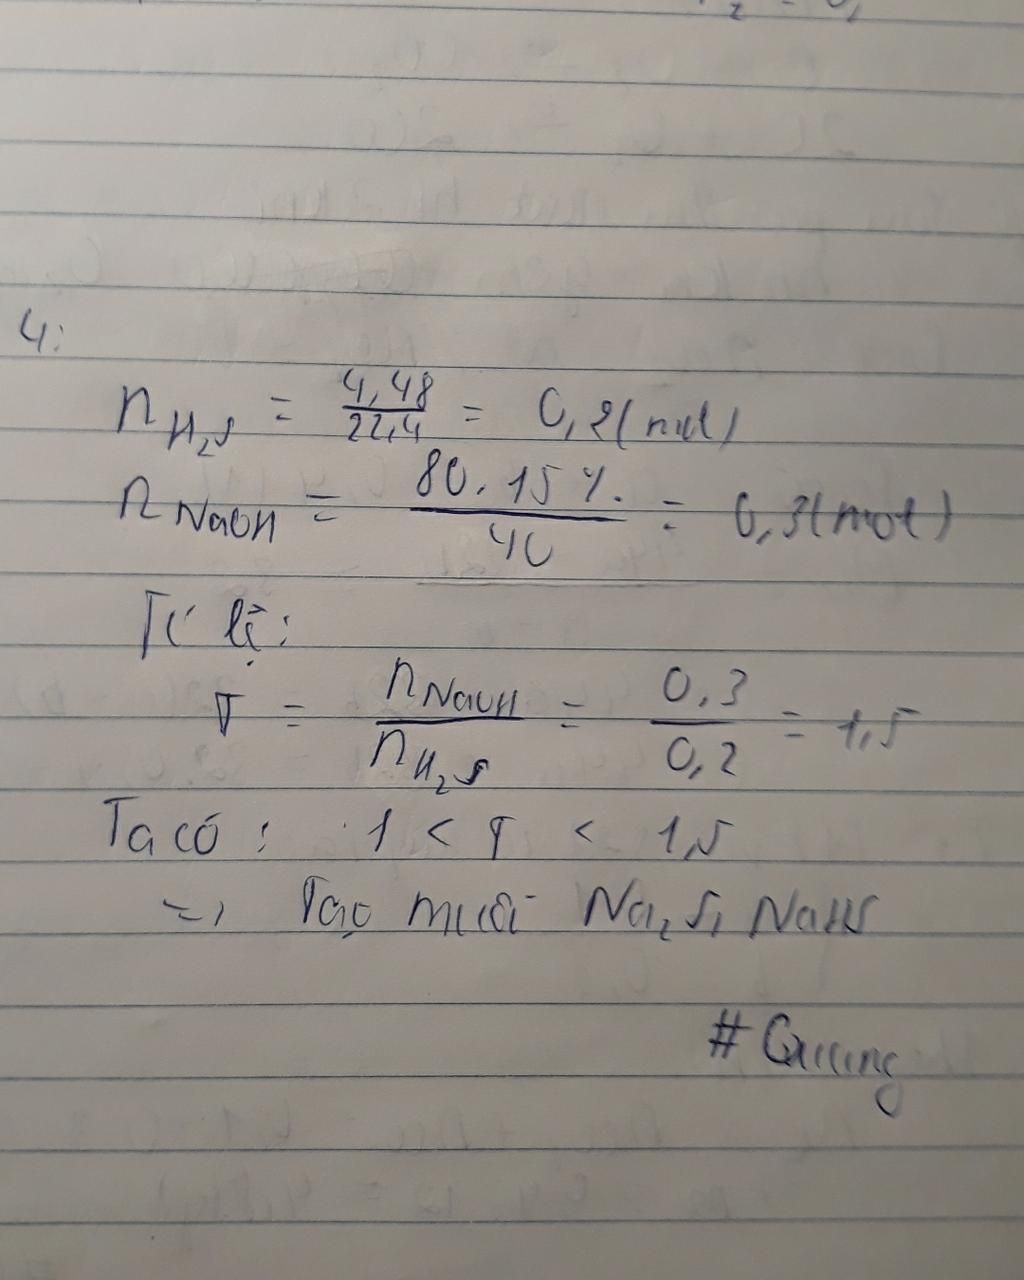 4:
n H₂S = 4,48 / 22,4 = 0,2 (mol)
n NaOH = 80.15% / 40 = 0,3 (mol)
Tỉ lệ:
T = n NaOH / n H₂S = 0,3 / 0,2 = 1,5
Ta có : 1 < T < 1,5
=> Tạo muối Na₂S, NaHS